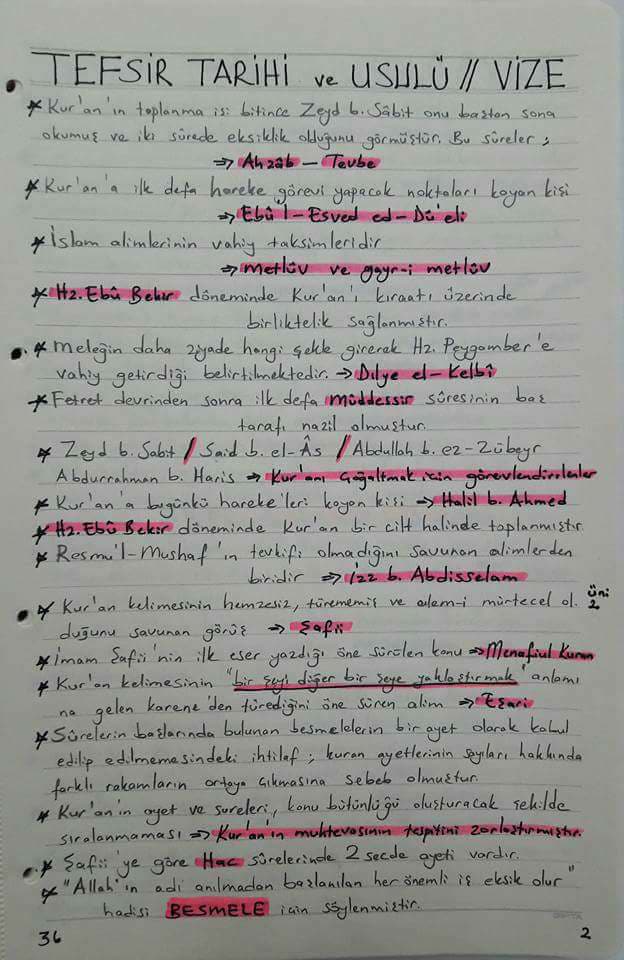 TEFSİR TARİHİ ve USULÜ // VİZE
* Kur'an'ın toplanma işi bitince Zeyd b. Sâbit onu baştan sona
okumuş ve iki sûrede eksiklik olduğunu görmüştür. Bu sûreler ;
⇒ Ahzâb – Tevbe
* Kur'an'a ilk defa hareke görevi yapacak noktaları koyan kişi
⇒ Ebû'l-Esved ed-Dû'eli
* İslam alimlerinin vahiy taksimleridir
⇒ metlûv ve gayr-i metlûv
* Hz. Ebû Bekir döneminde Kur'an'ı kıraatı üzerinde
birliktelik sağlanmıştır.
* Meleğin daha ziyade hangi şekle girerek Hz. Peygamber'e
vahiy getirdiği belirtilmektedir. → Dıhye el-Kelbî
* Fetret devrinden sonra ilk defa müddessir sûresinin baş
tarafı nazil olmuştur.
* Zeyd b. Sabit / Said b. el-Âs / Abdullah b. ez-Zübeyr
Abdurrahman b. Haris ⇒ Kur'anı çoğaltmak için görevlendirilenler
* Kur'an'a bugünkü hareke'leri koyan kişi → Halil b. Ahmed
* Hz. Ebû Bekir döneminde Kur'an bir cilt halinde toplanmıştır.
* Resmü'l-Mushaf'ın tevkifi olmadığını savunan alimlerden
biridir ⇒ İzz b. Abdisselam
üni 2
* Kur'an kelimesinin hemzesiz, türememiş ve alem-i mürtecel ol.
duğunu savunan görüş ⇒ Şafii
* İmam Şafii'nin ilk eser yazdığı öne sürülen konu ⇒ Menafiul Kuran
* Kur'an kelimesinin "bir şeyi diğer bir şeye yaklaştırmak" anlamı
na gelen karene'den türediğini öne süren alim ⇒ Eşari
* Sûrelerin başlarında bulunan besmelelerin bir ayet olarak kabul
edilip edilmemesindeki ihtilaf ; kuran ayetlerinin sayıları hakkında
farklı rakamların ortaya çıkmasına sebeb olmuştur.
* Kur'an'ın ayet ve sureleri, konu bütünlüğü oluşturacak şekilde
sıralanmaması ⇒ Kur'an'ın muhtevasının tespitini zorlaştırmıştır.
* Şafii'ye göre Hac sûrelerinde 2 secde ayeti vardır.
* "Allah'ın adı anılmadan başlanılan her önemli iş eksik olur"
hadisi BESMELE için söylenmiştir.
36
2